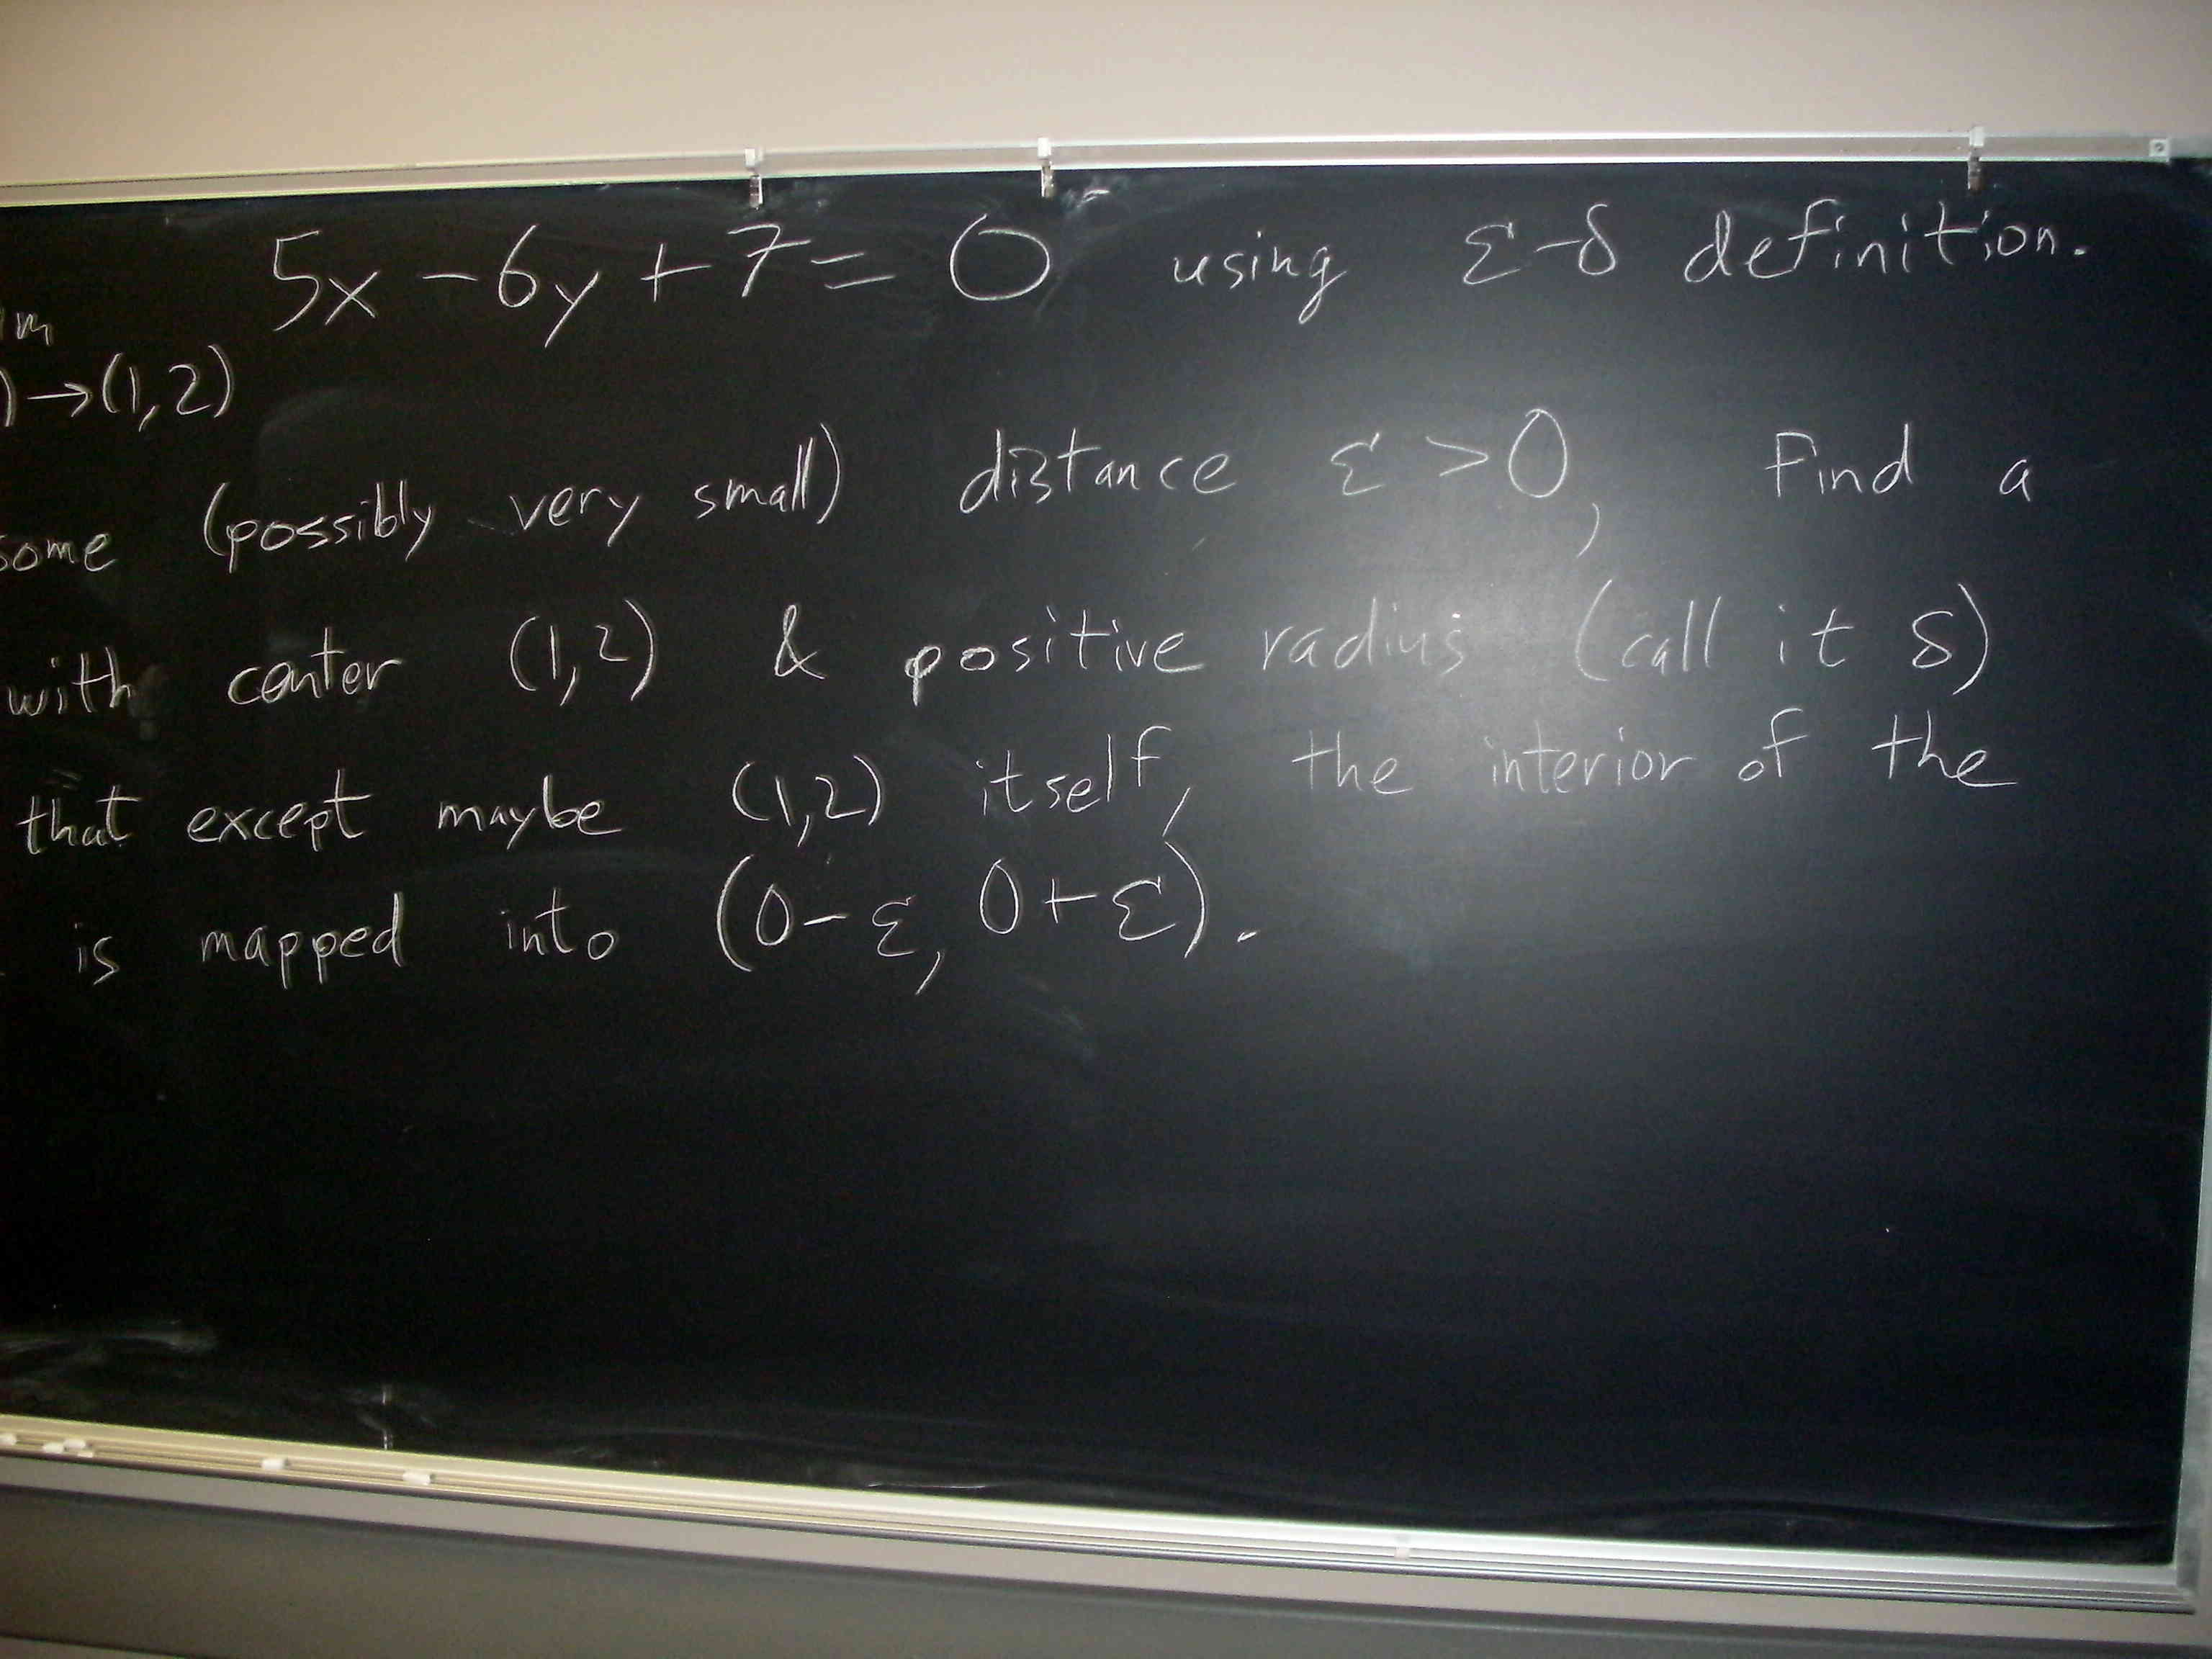 5x - 6y + 7 = 0 using ε-δ definition.
) → (1,2)
some (possibly very small) distance ε > 0, find a
with center (1,2) & positive radius (call it δ)
that except maybe (1,2) itself, the interior of the
is mapped into (0-ε, 0+ε).